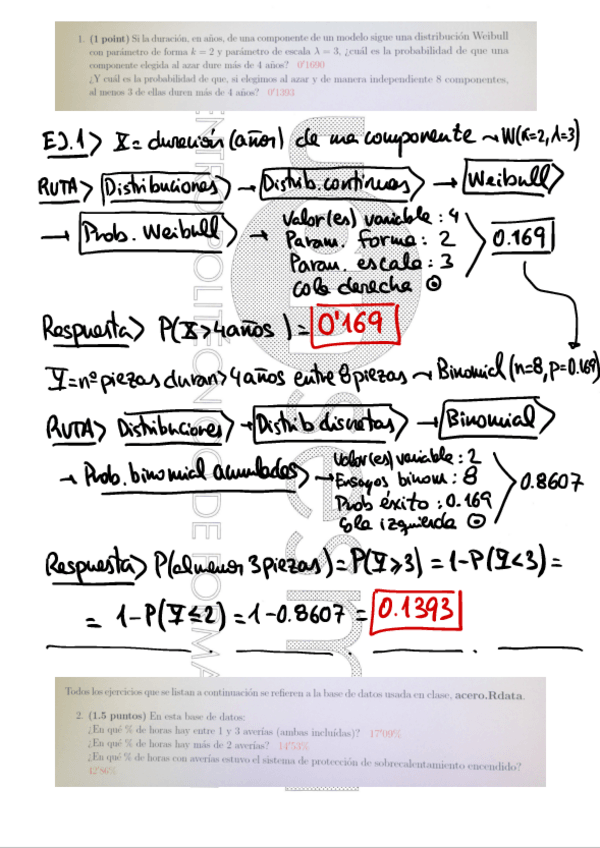 1. (1 point) Si la duración, en años, de una componente de un modelo sigue una distribución Weibull
con parámetro de forma k = 2 y parámetro de escala λ = 3, ¿cuál es la probabilidad de que una
componente elegida al azar dure más de 4 años? 0'1690
¿Y cuál es la probabilidad de que, si elegimos al azar y de manera independiente 8 componentes,
al menos 3 de ellas duren más de 4 años? 0'1393
EJ.1> X=duración(años) de una componente ~W(K=2,λ=3)
RUTA> Distribuciones → Distrib.continuas → Weibull
→ Prob. Weibull → Valor(es) variable: 4
Param. forma: 2
Param. escala: 3
cola derecha
0.169
Respuesta> P(X>4años)= 0'169
Y=nº piezas duran>4años entre 8piezas ~ Binomial(n=8, p=0.169)
RUTA> Distribuciones → Distrib discretas → Binomial
→ Prob. binomial acumuladas → Valor(es) variable: 2
Ensayos binom: 8
Prob éxito: 0.169
Cola izquierda
0.8607
Respuesta> P(al menos 3 piezas) = P(Y≥3) = 1-P(Y<3) =
= 1-P(Y≤2) = 1-0.8607 = 0.1393
Todos los ejercicios que se listan a continuación se refieren a la base de datos usada en clase, acero.Rdata.
2. (1.5 puntos) En esta base de datos:
¿En qué % de horas hay entre 1 y 3 averías (ambas incluídas)? 17'09%
¿En qué % de horas hay más de 2 averías? 14'53%
¿En qué % de horas con averías estuvo el sistema de protección de sobrecalentamiento encendido?
42'86%